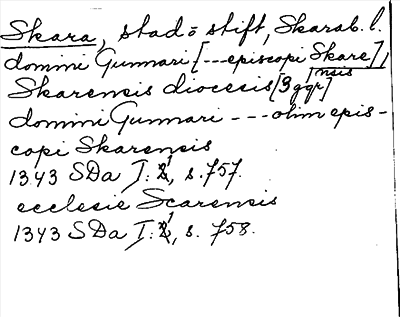 Skara, stad o stift, Skarab. l.
domini Gunnari [---episcopi Skare],
nsis
Skarensis diocesis [3 ggr]
domini Gunnari --- olim epis-
copi Skarensis
1343 SDa I: 1, s. 757.
ecclesie Scarensis
1343 SDa I: 1, s. 758.